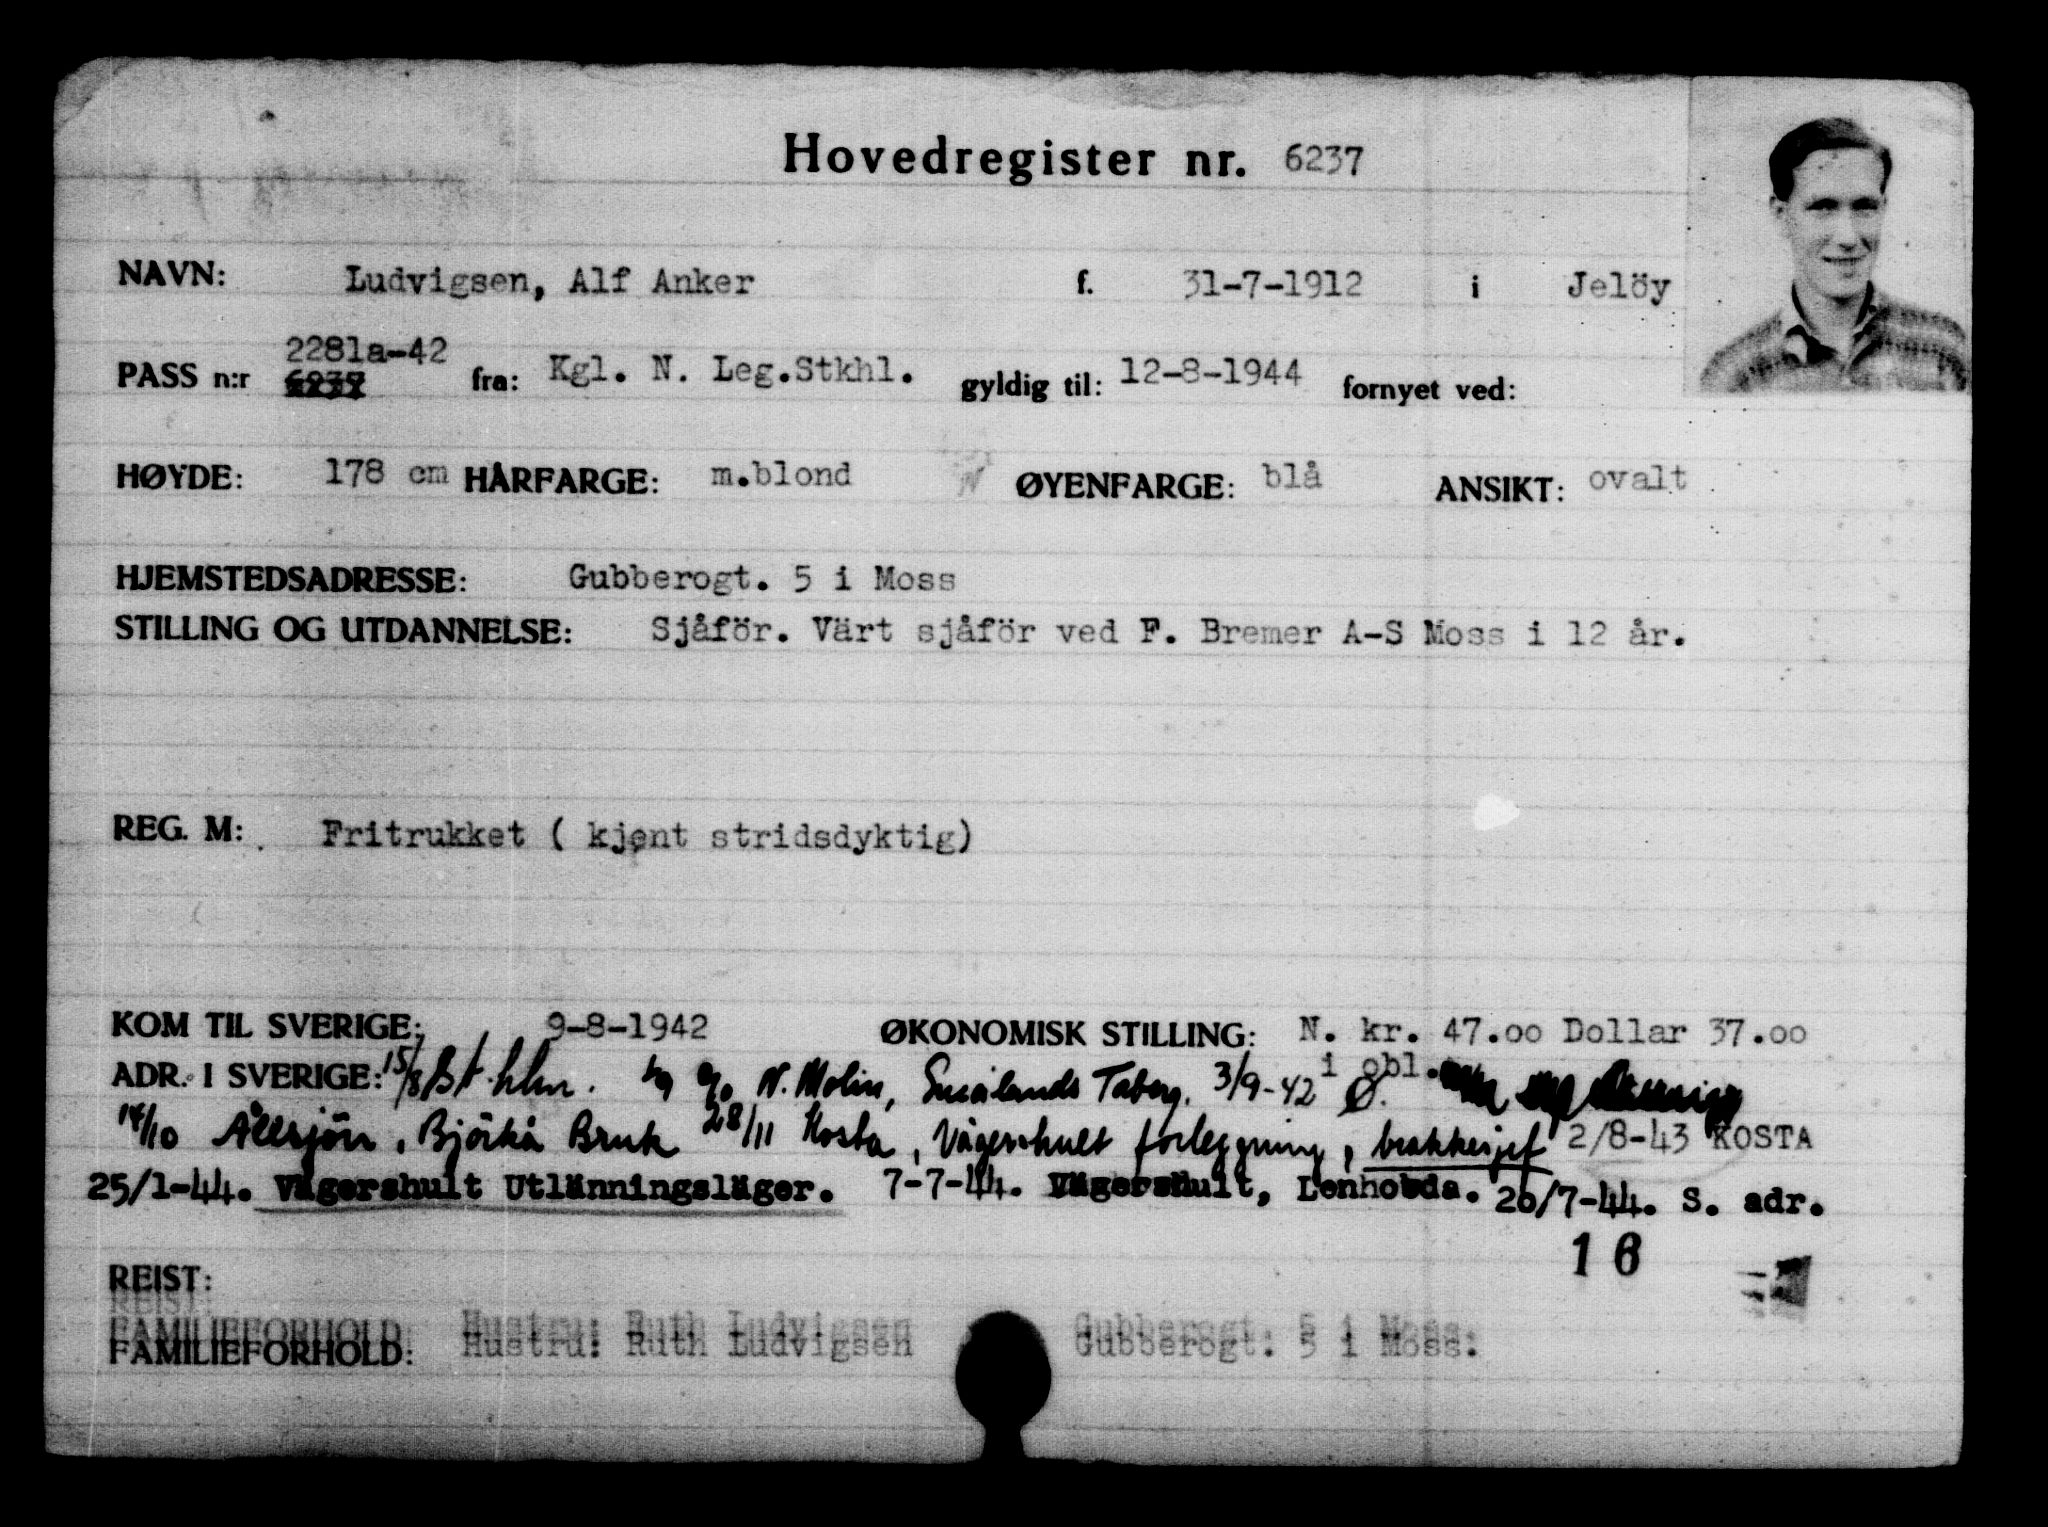 Hovedregister nr. 6237
NAVN: Ludvigsen, Alf Anker f. 31-7-1912 i Jelöy
2281a-42
PASS n:r 6237 fra: Kgl. N. Leg.Stkhl. gyldig til: 12-8-1944 fornyet ved:
HØYDE: 178 cm HÅRFARGE: m.blond ØYENFARGE: blå ANSIKT: ovalt
HJEMSTEDSADRESSE: Gubberogt. 5 i Moss
STILLING OG UTDANNELSE: Sjåför. Värt sjåför ved F. Bremer A-S Moss i 12 år.
REG. M: Fritrukket ( kjent stridsdyktig)
KOM TIL SVERIGE: 9-8-1942 ØKONOMISK STILLING: N. kr. 47.oo Dollar 37.oo
i obl.
ADR. I SVERIGE: 15/8 Sthlm. N. Molin, Smålands Taberg. 3/9-42 Ø.
14/10 Ållsjön, Björkå Bruk 28/11 Kosta, Vågershult forleggning, brakkesjef 2/8-43 KOSTA
25/1-44. Vågershult Utlänningsläger. 7-7-44. Vågershult, Lenhovda. 20/7-44. S. adr.
16
REIST:
FAMILIEFORHOLD: Hustru: Ruth Ludvigsen Gubberogt. 5 i Moss.